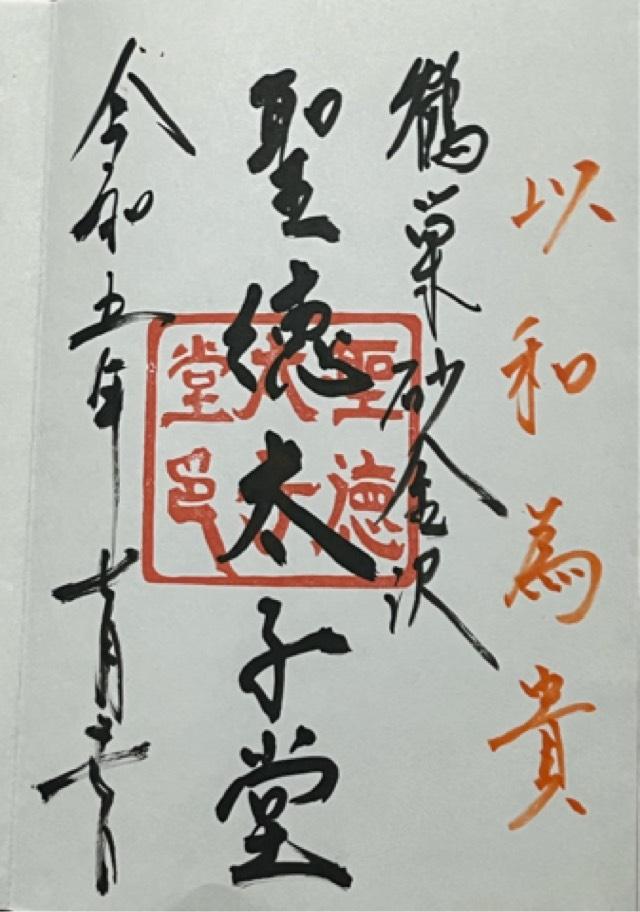 以和為貴
鶴巣砂金沢
聖徳太子堂
聖徳
太子
堂印
令和五年七月